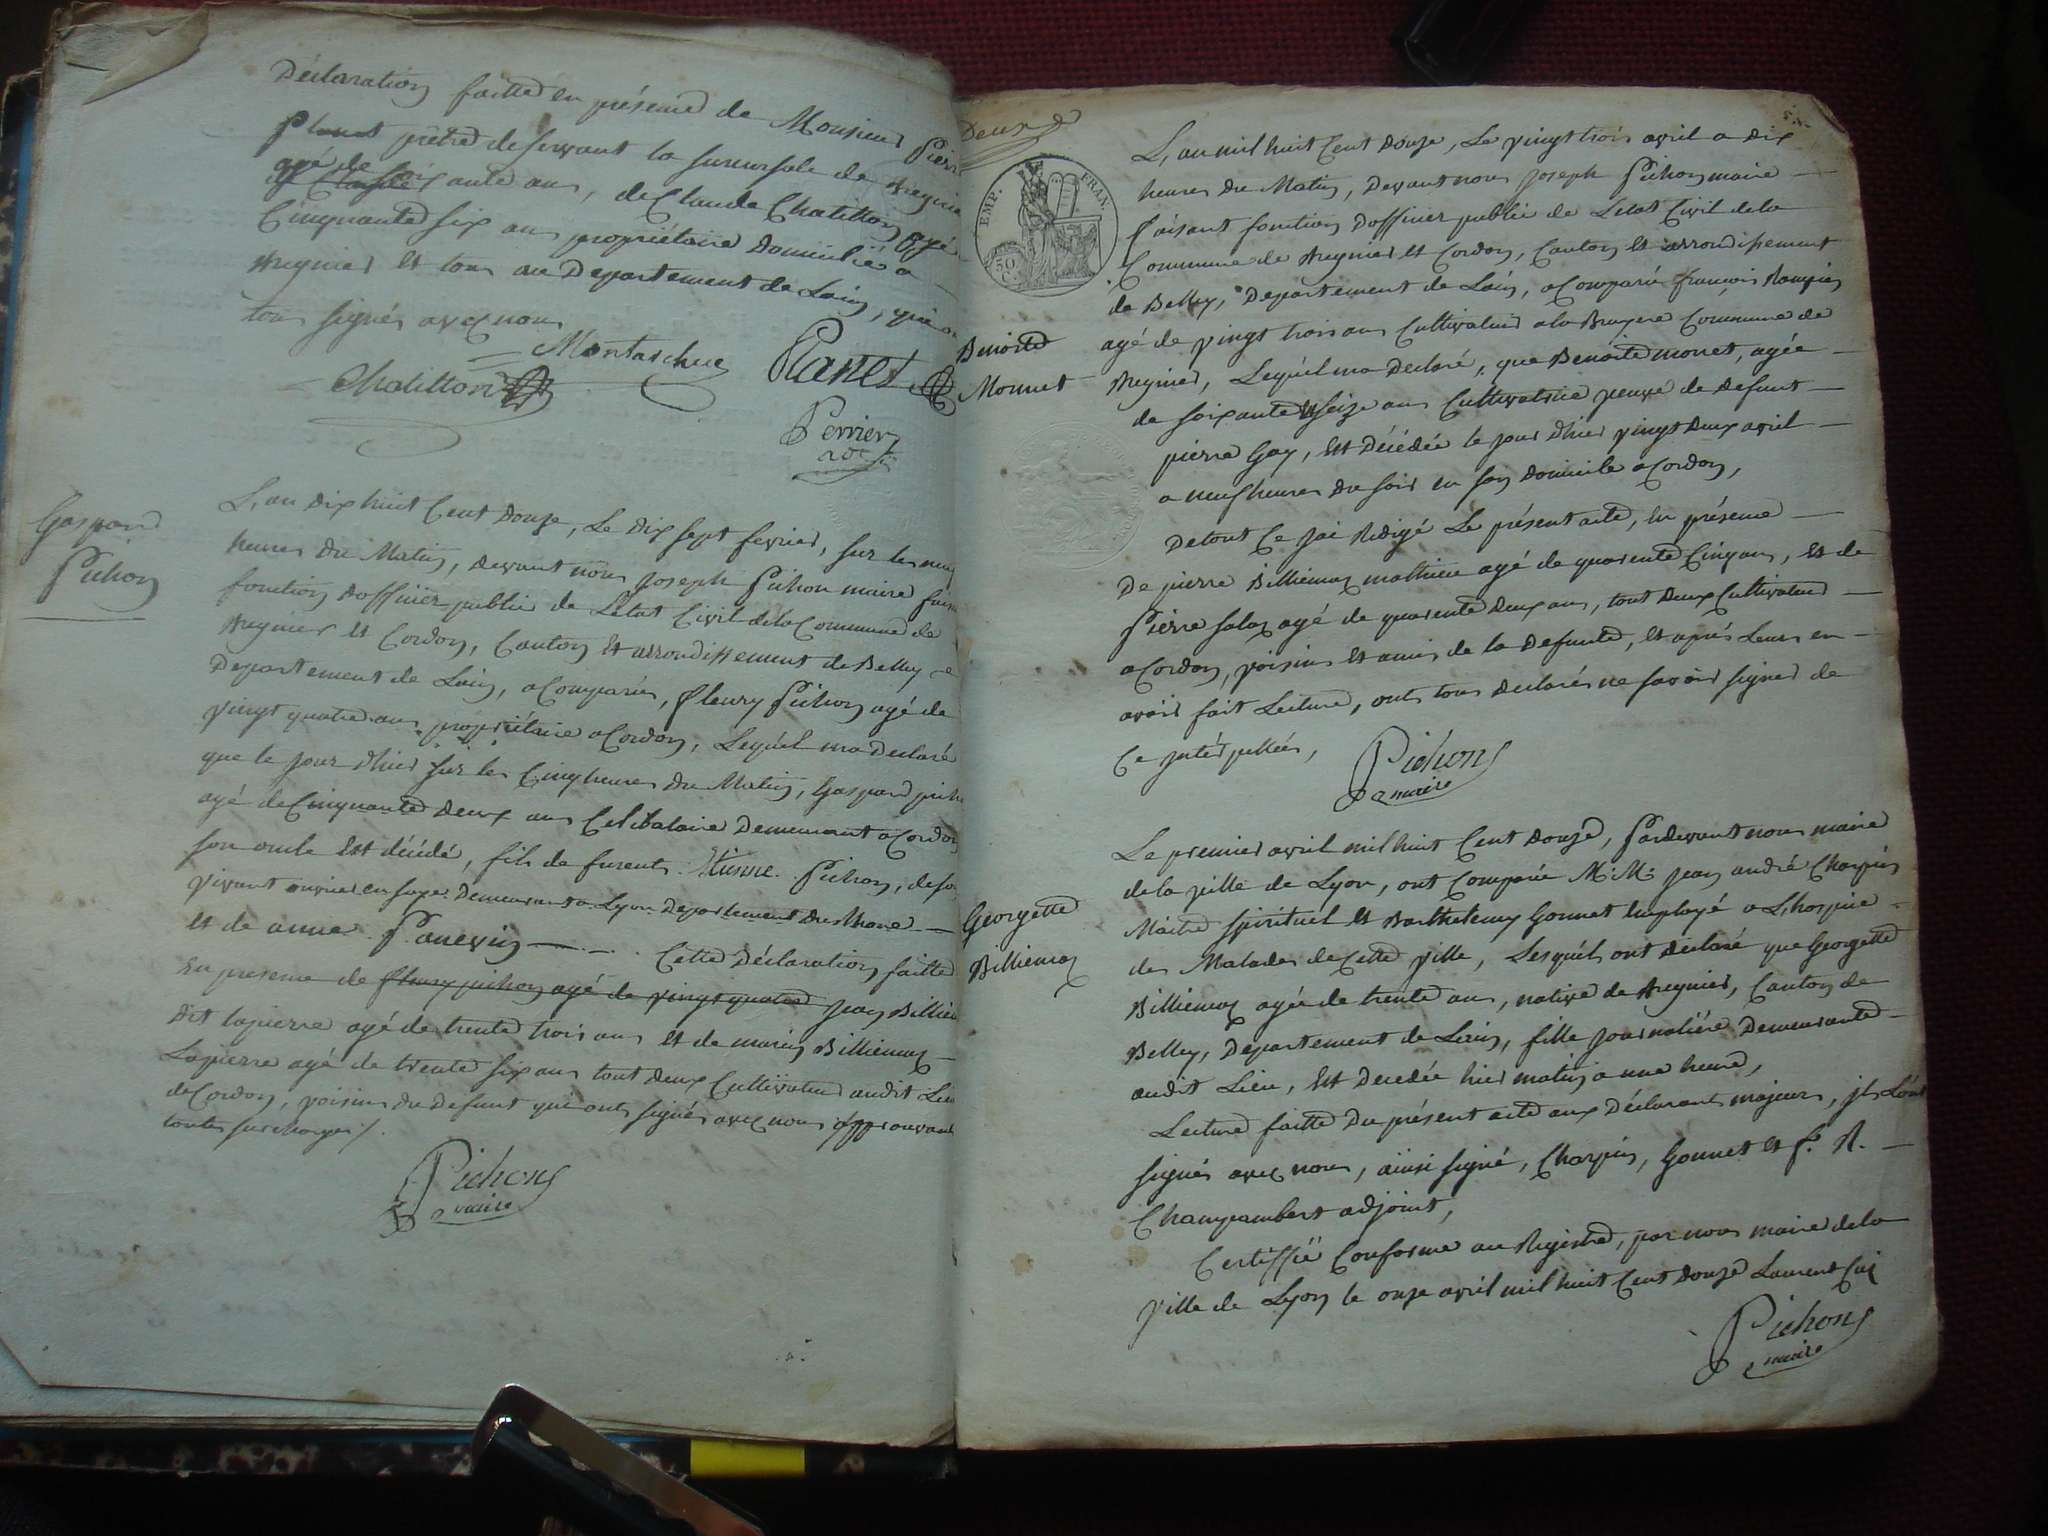 Déclaration faitte en présence de Monsieur Pierre
Planet prêtre desservant la sucursale de Aregnier
agé de soixante ans, de Claude Chatillon agé
Cinquante six ans propriétaire domicilié a
Aregnier et tous au Departement de Lain, qui on
tous signés avec nous
Montaschue Planet
Chatillon
Perrier
Gaspard
Pichon
L'an dix huit Cent douze, Le dix sept fevrier, sur les neuf
heures du Matin, devant nous joseph Pichon maire fais
fonction d'officier public de Létat Civil de la Commune de
Aregnier et Cordon, Canton et arrondissement de Belley
Departement de Lain, a Comparus, fleury Pichon agé de
vingt quatre ans propriétaire a Cordon, Lequel ma declaré
que le jour d'hier sur les Cinq heures du Matin, Gaspard pich
agé de Cinquante deux ans Celibataire demeurant a Cordon
son oncle est décédé, fils de furent Etienne Pichon, de so
vivant ouvrier en soye demeurant a Lyon Departement du Rhone
et de anne Panevin Cette déclaration faitte
en presence de fleury pichon agé de vingt quatre jean Billie
dit lapierre agé de trente trois ans et de marin Billiemaz
Lapierre agé de trente six ans tout deux Cultivateur audit Lieu
de Cordon, voisins du defunt qui ont signés avec nous approuvant
toutes surcharges /.
Pichon
maire
Deux
EMP. FRAN.
50 C
Benoite
Monnet
L'an mil huit Cent douze, Le vingt trois avril a dix
heures du Matin, devant nous joseph Pichon maire
faisant fonction d'officier public de Létat Civil de la
Commune de Aregnier et Cordon, Canton et arrondissement
de Belley, Departement de Lain, a Comparus françois
agé de vingt trois ans Cultivateur a la Bruyere Commune de
Aregnier, Lequel ma declaré, que Benoite monet, agée
de soixante et seize ans Cultivatrice veuve de defunt
pierre Gay, est décédée le jour d'hier vingt deux avril
a neuf heures du soir en son domicile a Cordon,
De tout Ce jai Redigé Le présent acte, en présence
De pierre Billiemaz mathieu agé de quarente Cinq ans, et de
Pierre agé de quarente deux ans, tout deux Cultivateur
a Cordon, voisins et amis de la defunte, et après Leurs en
avoir fait Lecture, ont tous declarés ne savoir signer de
Ce interpellés,
Pichon
maire
Georgette
Billiemaz
Le premier avril mil huit Cent douze, Pardevant nous maire
de la ville de Lyon, ont Comparu M.M. jean andré Charpin
Maitre spirituel et Barthelemy Gonnet employé a L'hospice
des Malades de Cette ville, Lesquels ont declaré que Georgette
Billiemaz agée de trente ans, native de Aregnier, Canton de
Belley, Departement de Lain, fille journalière demeurante
audit Lieu, est decedée hier matin a une heure,
Lecture faitte du présent acte aux déclarants majeurs, ils L'ont
signés avec nous, ainsi signé, Charpin, Gonnet et f. R.
Champambert adjoint,
Certiffié Conforme au Registre, par nous maire de la
ville de Lyon le onze avril mil huit Cent douze Laurent
Pichon
maire